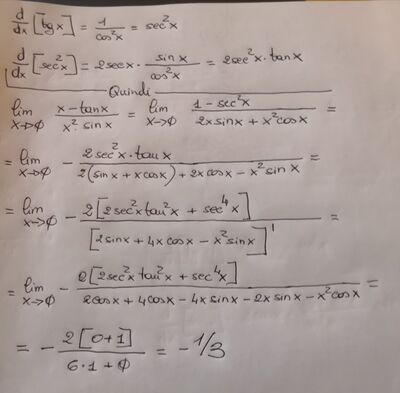 d/dx [tgx] = 1/cos²x = sec²x
d/dx [sec²x] = 2secx · sinx/cos²x = 2sec²x · tanx
Quindi
lim x→0 (x - tanx)/(x² · sinx) = lim x→0 (1 - sec²x)/(2x sinx + x² cosx) =
= lim x→0 - (2sec²x · tanx)/(2(sinx + x cosx) + 2x cosx - x² sinx) =
= lim x→0 - (2[2sec²x tan²x + sec⁴x])/([2sinx + 4x cosx - x² sinx]') =
= lim x→0 - (2[2sec²x tan²x + sec⁴x])/(2cosx + 4cosx - 4x sinx - 2x sinx - x² cosx) =
= - (2[0+1])/(6·1 + 0) = - 1/3